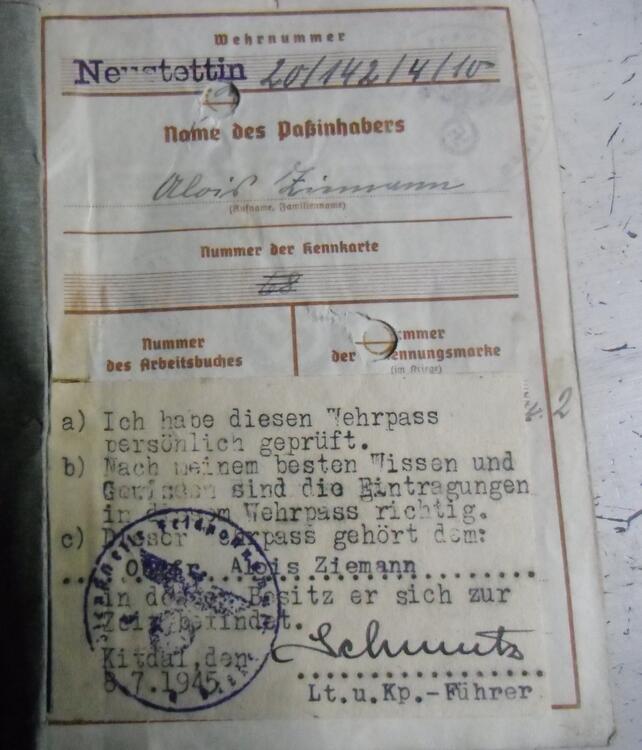 Wehrnummer
Neustettin 20/142/4/10
Name des Paßinhabers
Alois Ziemann
(Rufname, Familienname)
Nummer der Kennkarte
68
Nummer
des Arbeitsbuches
Nummer
der Erkennungsmarke
(im Kriege)
2
a) Ich habe diesen Wehrpass
persönlich geprüft.
b) Nach meinem besten Wissen und
Gewissen sind die Eintragungen
in diesem Wehrpass richtig.
c) Dieser Wehrpass gehört dem:
Alois Ziemann
in dessen Besitz er sich zur
Zeit befindet.
Schmutz
Kitdal, den
8.7.1945
Lt.u.Kp.-Führer